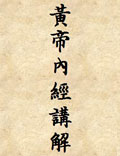 黃帝內經講解